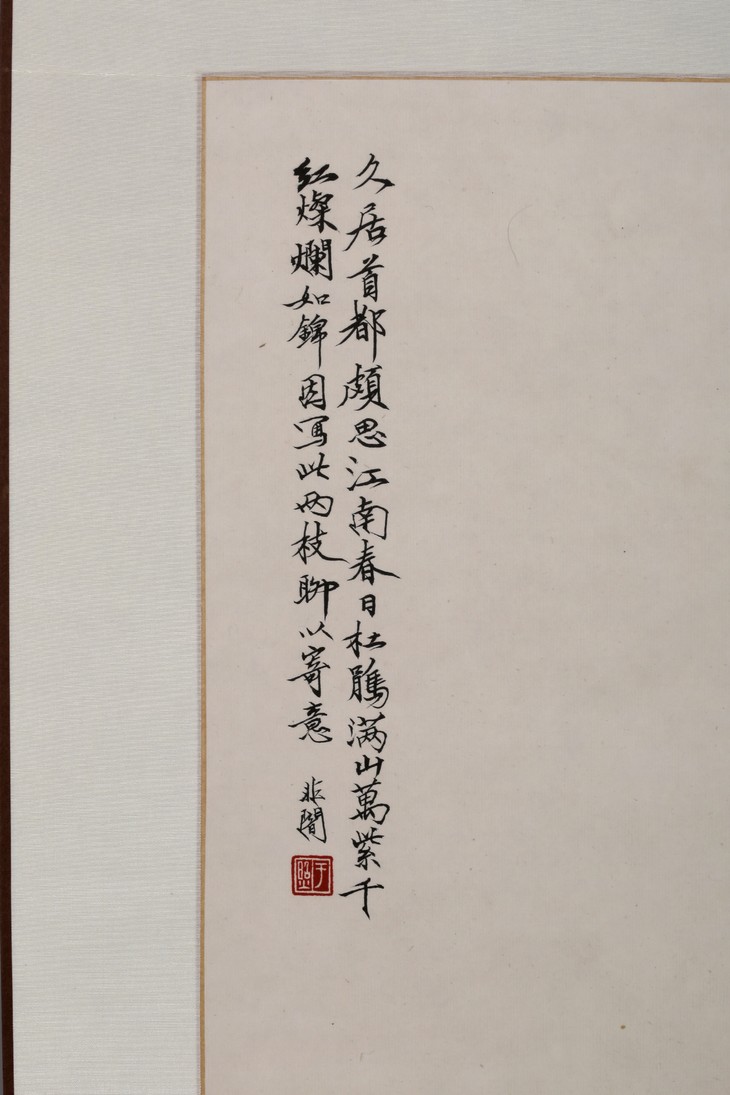 久居首都頗思江南春日杜鵑满山萬紫千
红燦爛如錦因写此两枝聊以寄意
非闇
于照